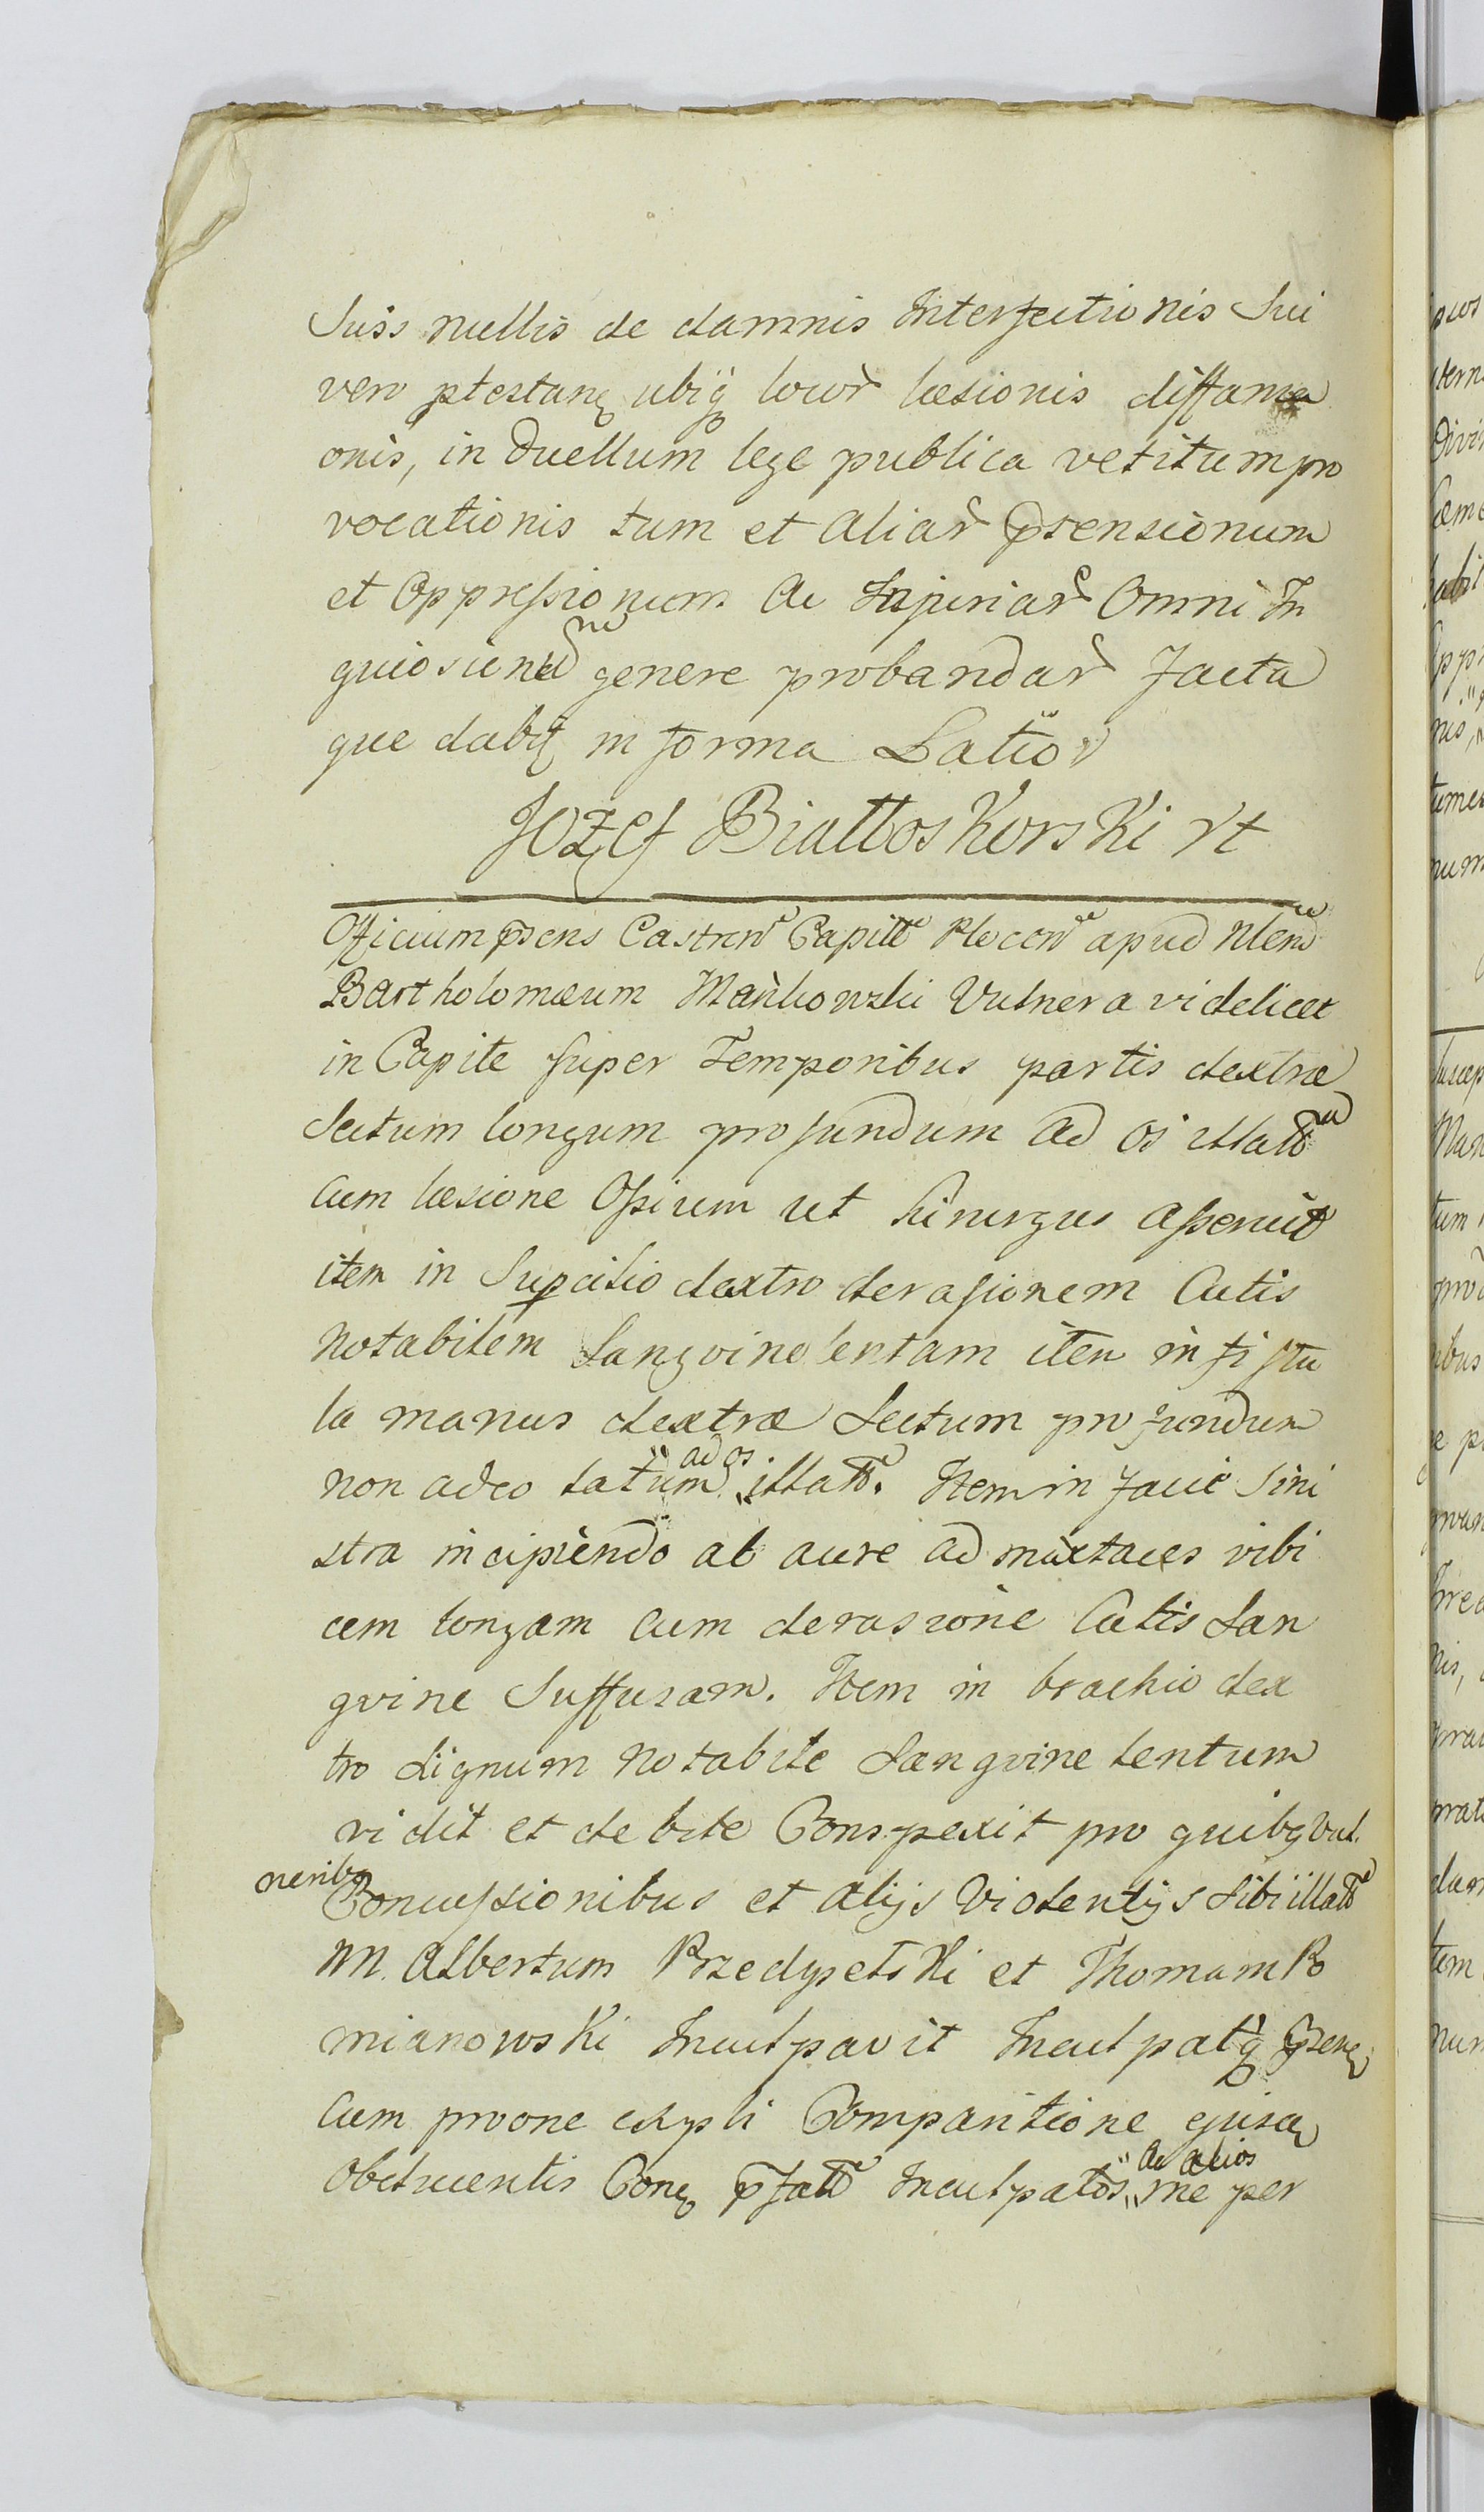 Suis nullis de damnis Interfectionis Sui
vero ptestanq ubiq locor læsionis diffama
onis, in Duellum lege publica vetitum pro
vocationis tum et aliar ptensionum
et Oppressionum ac Injuriar Omni In
genere probandar facta
que dabit in forma Latiori
Jozef Białłoskorski
Officium præns Castren Capitle Plocen apud Nlem
Bartholomæum Mańkowski Vulnera videlicet
in Capite super Temporibus partis dextræ
Sectum longum profundum ad os illat
cum læsione Ossium ut hirurgus asseruit
item in Supcilio dextro derasionem Cutis
notabilem Sangvinolentam item in fistu
la manus dextræ Sectum profundum
non adeo latum ad os illat. Item in facie Sini
stra incipiendo ab aure ad mustaces vibi
cem longam cum derasione Cutis San
gvine Suffusam. Item in brachio dex
tro Signum notabile Sangvine lentum
vidit et debite Conspexit pro quibq Vul
neribq Concussionibus et alijs Violentijs Sibi illat
M. Albertum Przedpełski et Thomam Ro
mianowski Inculpavit Inculpatq psenq
cum proone ampli Comparitione ejusq
Obstucentis Conq pfatt Inculpatos ac alios me per